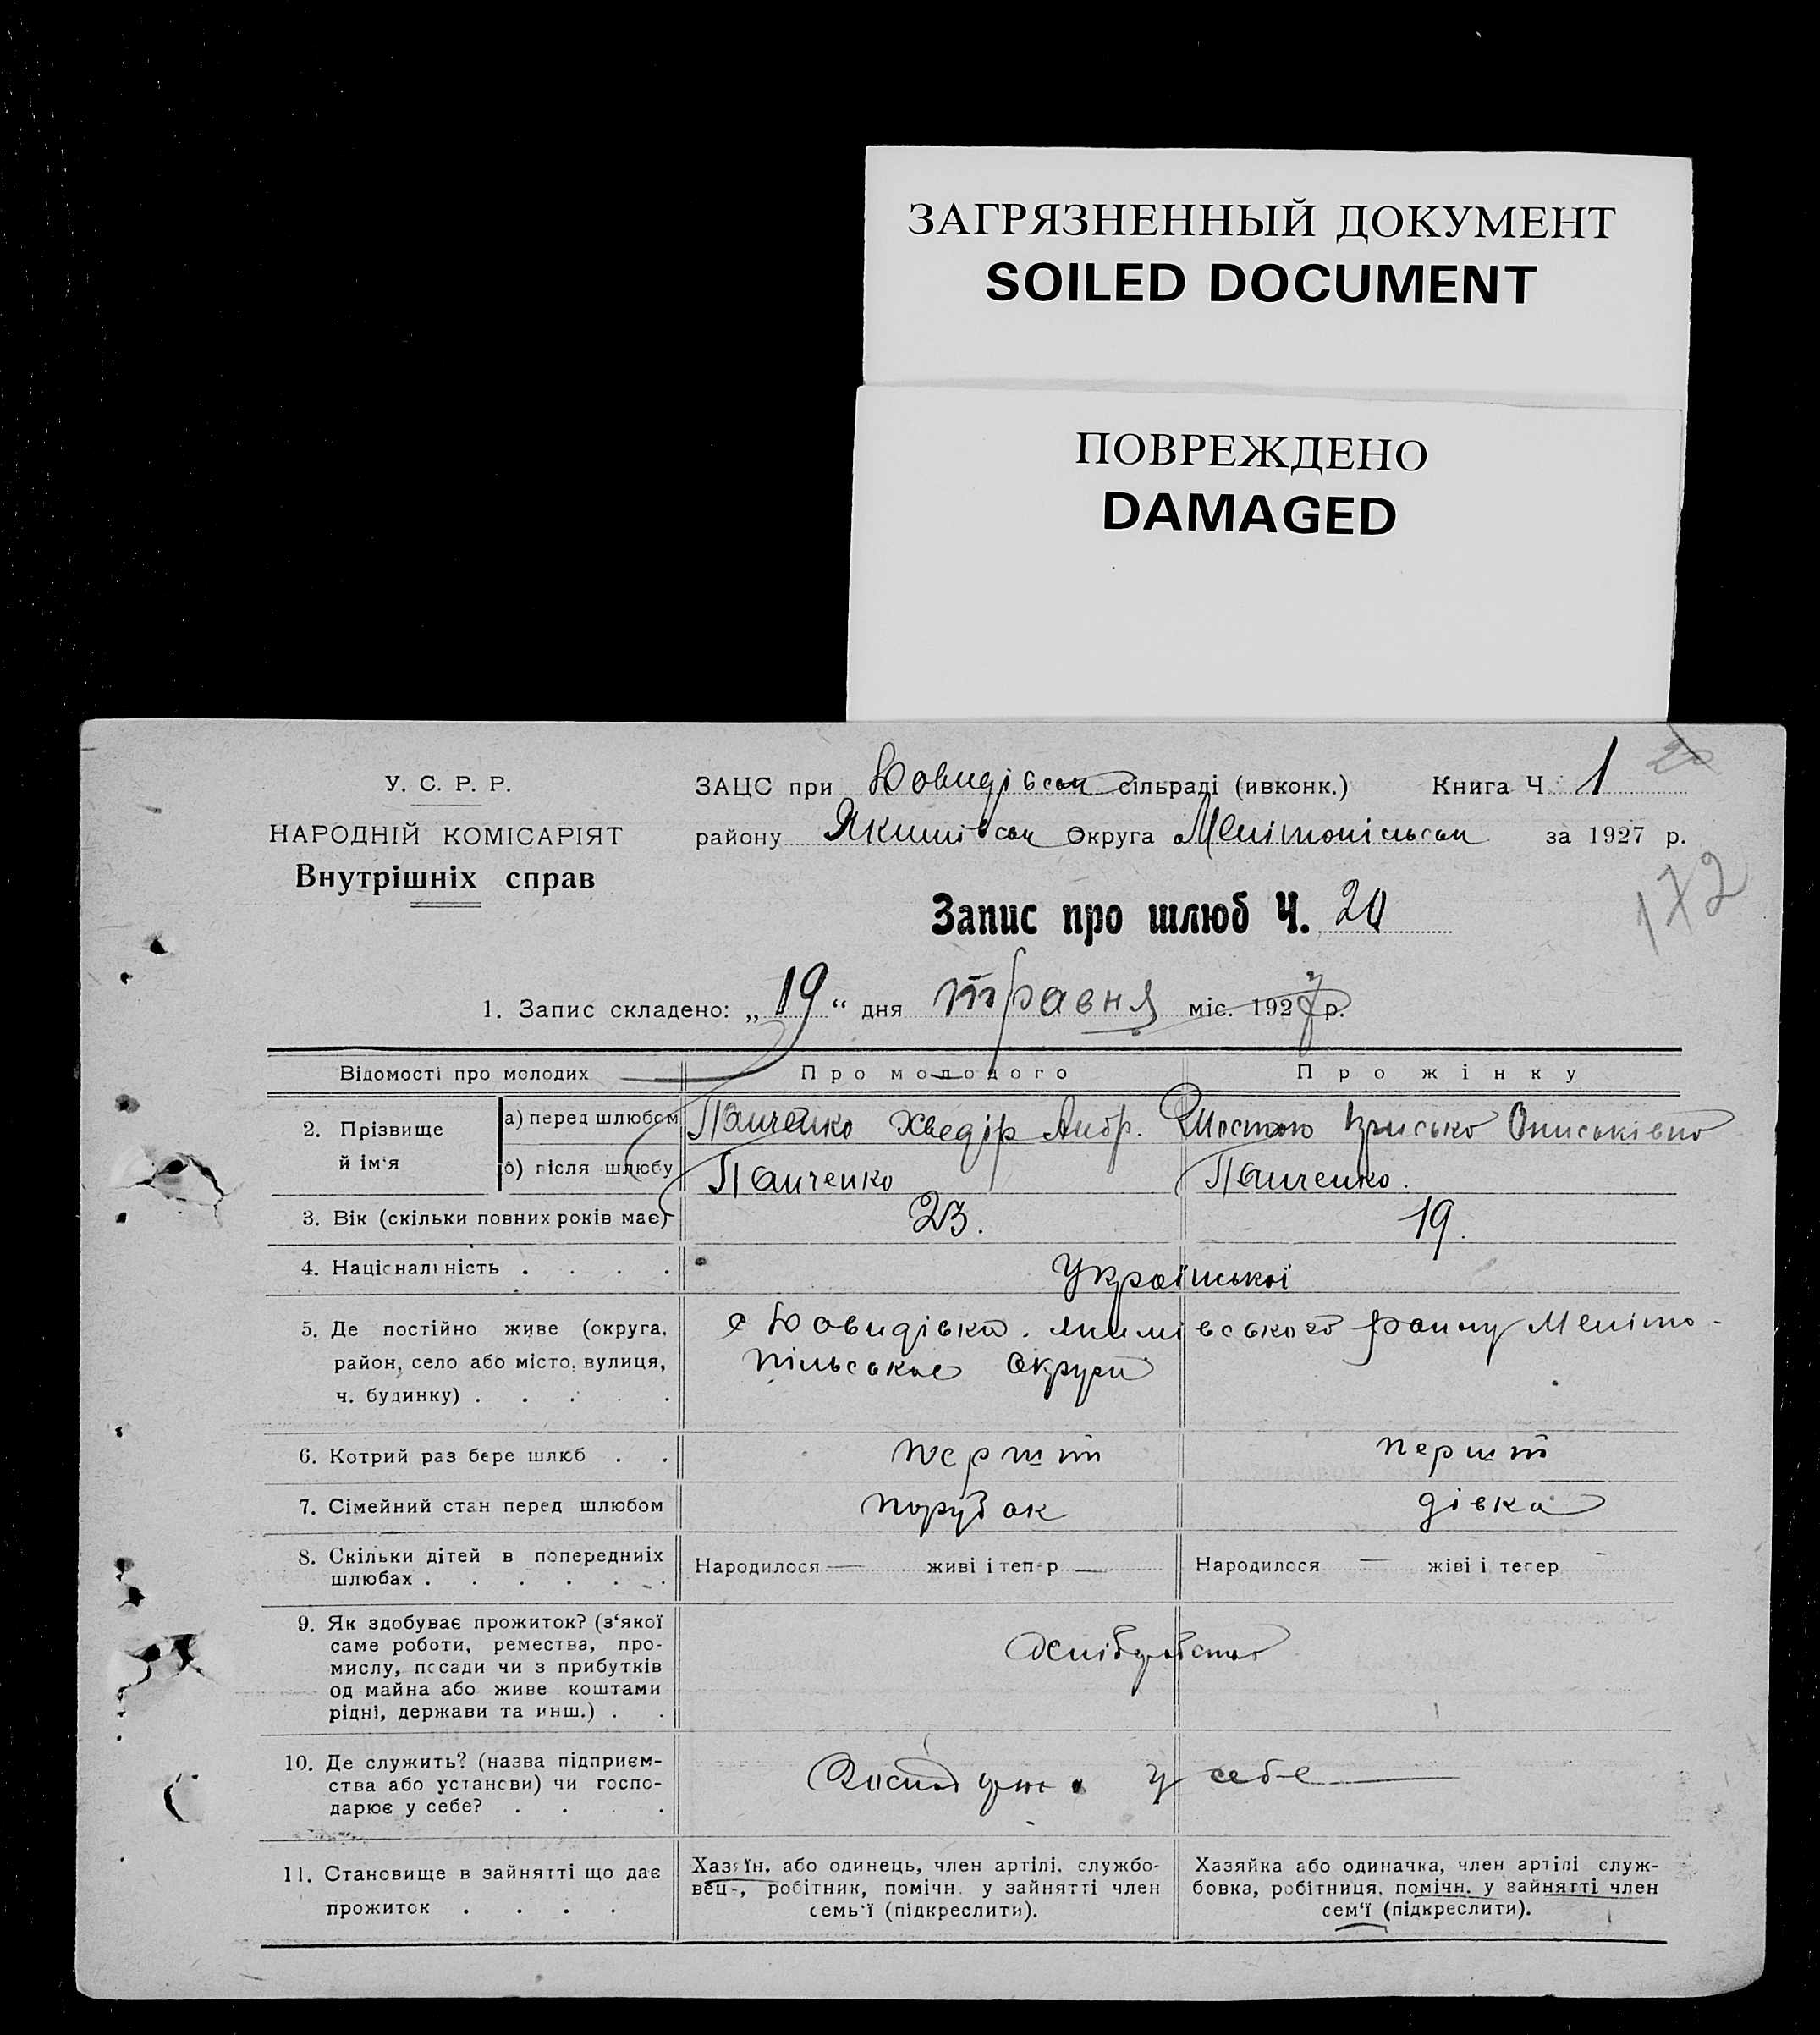 ЗАГРЯЗНЕННЫЙ ДОКУМЕНТ
SOILED DOCUMENT
ПОВРЕЖДЕНО
DAMAGED
У. С. Р. Р.
НАРОДНІЙ КОМІСАРІЯТ
Внутрішніх справ
ЗАЦС при Давидівськ сільраді (ивконк.) Книга Ч 1
району Якимівськ округа Мелітопільськ за 1927 р.
172
Запис про шлюб Ч. 20
1. Запис складено: „19“ дня травня міс. 1927 р.
Відомості про молодих Про молодого Про жінку
2. Прізвище й ім'я
а) перед шлюбом Панченко Хведір Андр.
б) після шлюбу Панченко Панченко.
3. Вік (скільки повних років має) 23. 19.
4. Національність . . . . Української
5. Де постійно живе (округа, с Давидівка. Якимівського району Меліто-
район, село або місто, вулиця, пільської Округи
ч. будинку) . . . . .
6. Котрий раз бере шлюб . . перший перший
7. Сімейний стан перед шлюбом парубок дівка
8. Скільки дітей в попередніх Народилося — живі і тепер — Народилося — жіві і тепер -
шлюбах . . . . . .
9. Як здобуває прожиток? (з'якої
саме роботи, ремества, про-
мислу, посади чи з прибутків
од майна або живе коштами
рідні, держави та инш.) . .
10. Де служить? (назва підприєм-
ства або установи) чи госпо- у себе
дарює у себе? . . .
11. Становище в зайнятті що дає
прожиток . . . .
Хазяїн, або одинець, член артілі, службо-
вець, робітник, помічн. у зайнятті член
семь'ї (підкреслити).
Хазяйка або одиначка, член артілі служ-
бовка, робітниця, помічн. у зайнятті член
сем'ї (підкреслити).